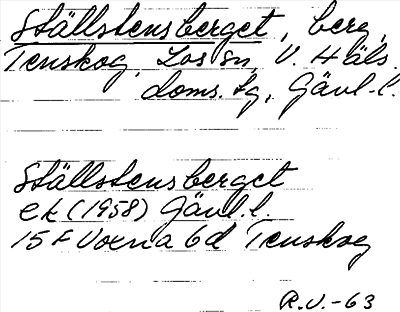 Ställstensberget, berg,
Tenskog, Los sn, V. Häls.
doms. tg, Gävl. l.
Ställstensberget
ek (1958) Gävl. l.
15 F Voxna 6d Tenskog
R.V. -63